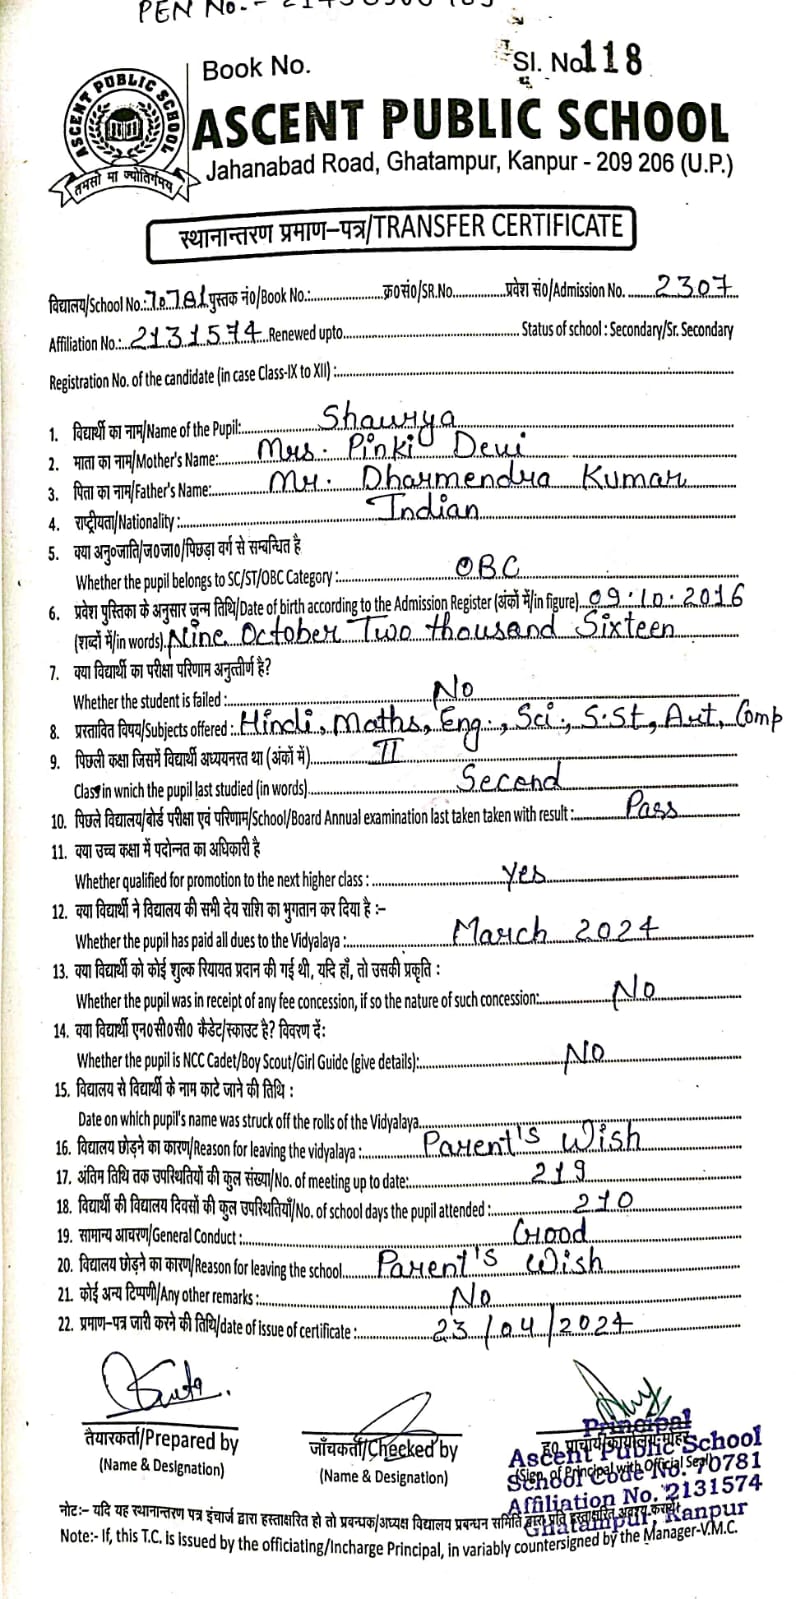 PEN No.-
Book No.
Sl. No. 118
ASCENT PUBLIC SCHOOL
तमसो मा ज्योतिर्गमय
ASCENT PUBLIC SCHOOL
Jahanabad Road, Ghatampur, Kanpur - 209 206 (U.P.)
स्थानान्तरण प्रमाण-पत्र/TRANSFER CERTIFICATE
विद्यालय/School No.: 70781 पुस्तक नं०/Book No.:.......... क्र०सं०/SR.No.......... प्रवेश सं०/Admission No. ..... 2307
Affiliation No.: 2131574 Renewed upto.......... Status of school : Secondary/Sr. Secondary
Registration No. of the candidate (in case Class-IX to XII) :..........
1. विद्यार्थी का नाम/Name of the Pupil: Shaurya
2. माता का नाम/Mother's Name: Mrs. Pinki Devi
3. पिता का नाम/Father's Name: Mr. Dharmendra Kumar
4. राष्ट्रीयता/Nationality : Indian
5. क्या अनु०जाति/ज०जा०/पिछड़ा वर्ग से सम्बन्धित है
Whether the pupil belongs to SC/ST/OBC Category : OBC
6. प्रवेश पुस्तिका के अनुसार जन्म तिथि/Date of birth according to the Admission Register (अंकों में/in figure) 09.10.2016
(शब्दों में/in words). Nine October Two thousand Sixteen
7. क्या विद्यार्थी का परीक्षा परिणाम अनुत्तीर्ण है?
Whether the student is failed : No
8. प्रस्तावित विषय/Subjects offered : Hindi, Maths, Eng., Sci., S.St, Art, Comp
9. पिछली कक्षा जिसमें विद्यार्थी अध्ययनरत था (अंकों में) II
Class in wnich the pupil last studied (in words) Second
10. पिछले विद्यालय/बोर्ड परीक्षा एवं परिणाम/School/Board Annual examination last taken taken with result : Pass
11. क्या उच्च कक्षा में पदोन्नत का अधिकारी है
Whether qualified for promotion to the next higher class : Yes
12. क्या विद्यार्थी ने विद्यालय की सभी देय राशि का भुगतान कर दिया है :-
Whether the pupil has paid all dues to the Vidyalaya : March 2024
13. क्या विद्यार्थी को कोई शुल्क रियायत प्रदान की गई थी, यदि हाँ, तो उसकी प्रकृति :
Whether the pupil was in receipt of any fee concession, if so the nature of such concession: No
14. क्या विद्यार्थी एन०सी०सी० कैडेट/स्काउट है? विवरण दें:
Whether the pupil is NCC Cadet/Boy Scout/Girl Guide (give details): No
15. विद्यालय से विद्यार्थी के नाम काटे जाने की तिथि :
Date on which pupil's name was struck off the rolls of the Vidyalaya..........
16. विद्यालय छोड़ने का कारण/Reason for leaving the vidyalaya : Parent's Wish
17. अंतिम तिथि तक उपस्थितियों की कुल संख्या/No. of meeting up to date: 219
18. विद्यार्थी की विद्यालय दिवसों की कुल उपस्थितियाँ/No. of school days the pupil attended : 210
19. सामान्य आचरण/General Conduct : Good
20. विद्यालय छोड़ने का कारण/Reason for leaving the school Parent's Wish
21. कोई अन्य टिप्पणी/Any other remarks : No
22. प्रमाण-पत्र जारी करने की तिथि/date of issue of certificate : 23/04/2024
तैयारकर्ता/Prepared by
(Name & Designation)
जाँचकर्ता/Checked by
(Name & Designation)
ह० प्राचार्य/कार्यालय मोहर
(Sign. of Principal with Official Seal)
Principal
Ascent Public School
School Code No. 70781
Affiliation No. 2131574
Ghatampur, Kanpur
नोट:- यदि यह स्थानान्तरण पत्र इंचार्ज द्वारा हस्ताक्षरित हो तो प्रबन्धक/अध्यक्ष विद्यालय प्रबन्धन समिति द्वारा प्रति हस्ताक्षरित अवश्य करायें।
Note:- If, this T.C. is issued by the officiating/Incharge Principal, in variably countersigned by the Manager-V.M.C.